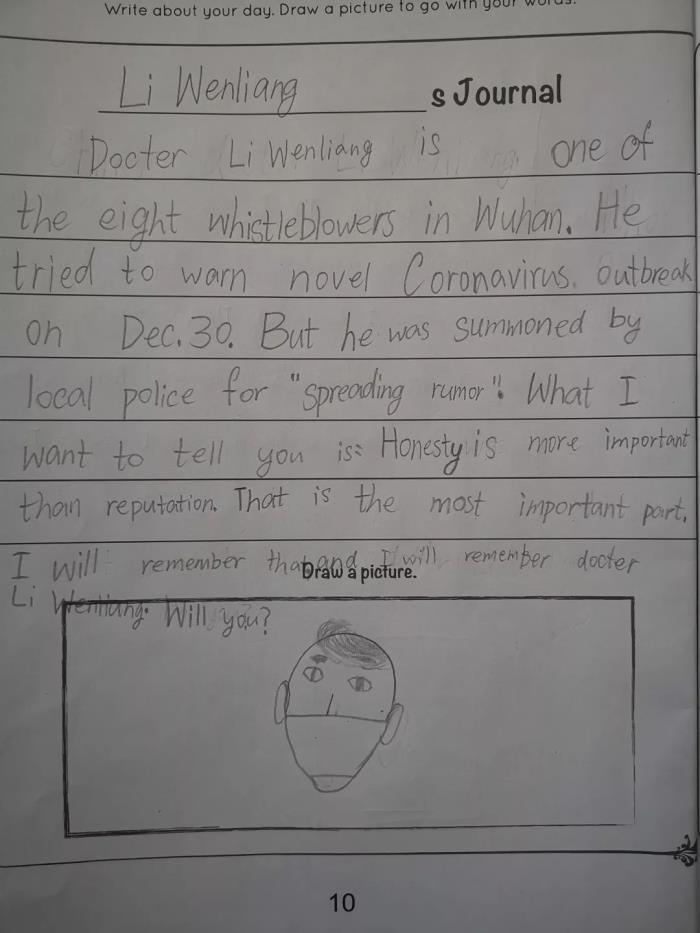 Write about your day. Draw a picture to go with your words.
Li Wenliang s Journal
Docter Li Wenliang is one of
the eight whistleblowers in Wuhan. He
tried to warn novel Coronavirus. outbreak
on Dec. 30. But he was summoned by
local police for "spreading rumor". What I
want to tell you is: Honesty is more important
than reputation. That is the most important part.
I will remember that and I will remember docter
Draw a picture.
Li Wenliang. Will you?
10